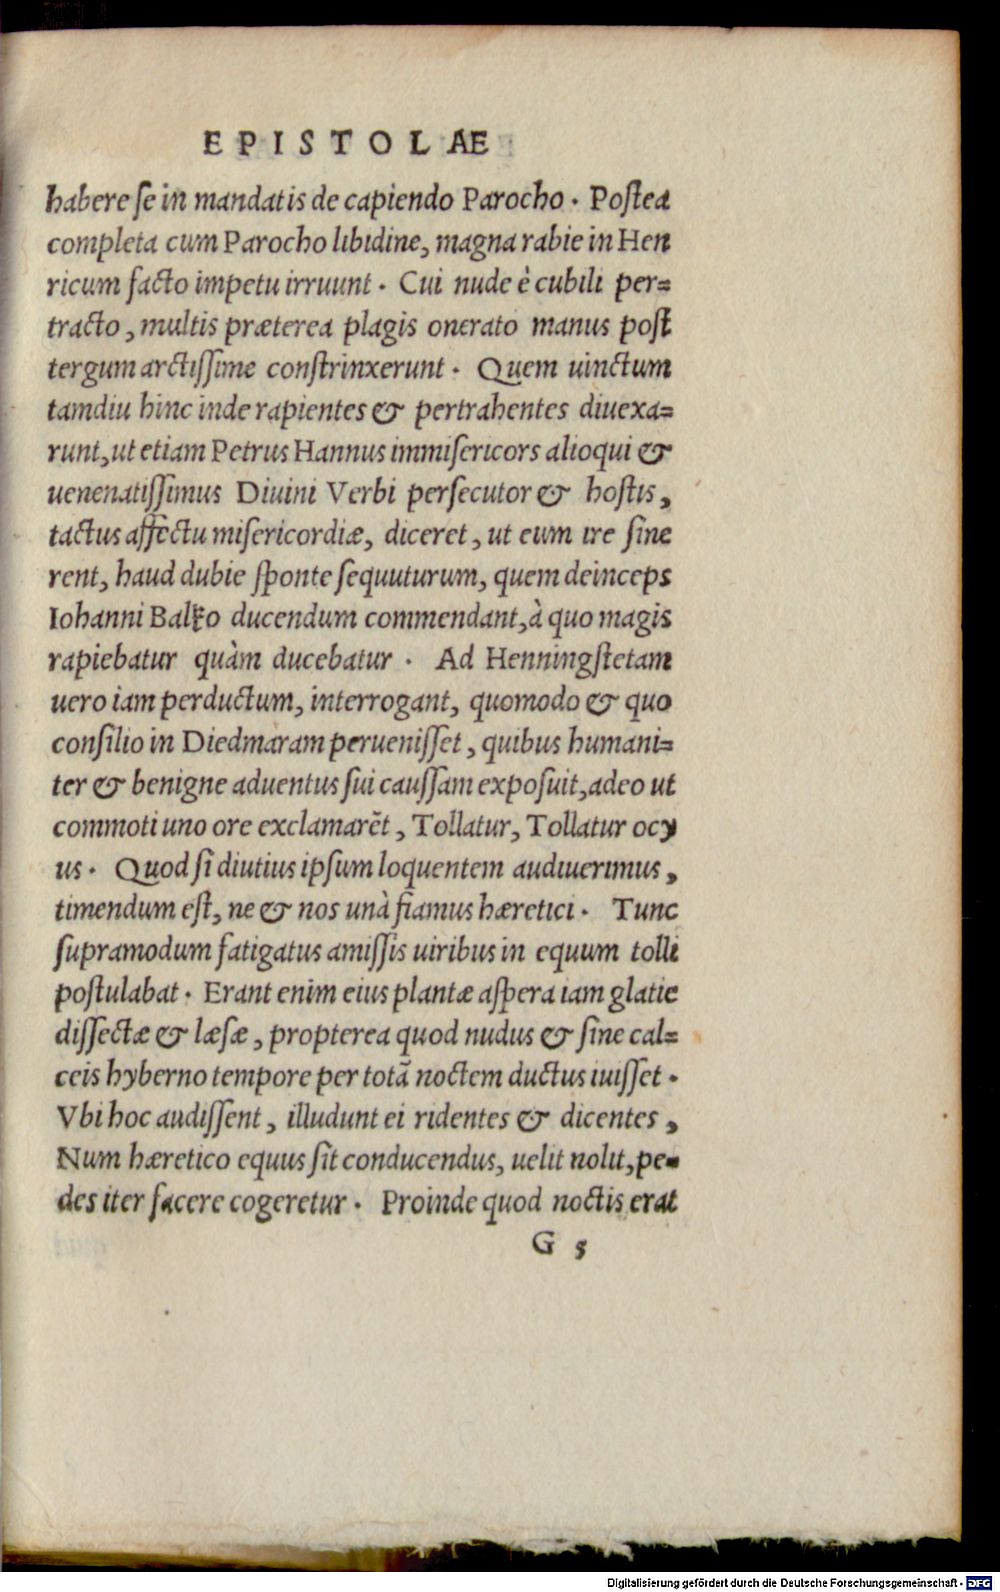 EPISTOLAE
habere se in mandatis de capiendo Parocho. Postea
completa cum Parocho libidine, magna rabie in Hen
ricum facto impetu irruunt. Cui nude è cubili per=
tracto, multis præterea plagis onerato manus post
tergum arctissime constrinxerunt. Quem uinctum
tamdiu hinc inde rapientes & pertrahentes diuexa=
runt, ut etiam Petrus Hannus immisericors alioqui &
uenenatissimus Diuini Verbi persecutor & hostis,
tactus affectu misericordiæ, diceret, ut eum ire sine
rent, haud dubie sponte sequuturum, quem deinceps
Iohanni Balko ducendum commendant, à quo magis
rapiebatur quàm ducebatur. Ad Henningstetam
uero iam perductum, interrogant, quomodo & quo
consilio in Diedmaram peruenisset, quibus humani=
ter & benigne aduentus sui caussam exposuit, adeo ut
commoti uno ore exclamarēt, Tollatur, Tollatur ocy
us. Quod si diutius ipsum loquentem audiuerimus,
timendum est, ne & nos unà fiamus hæretici. Tunc
supramodum fatigatus amissis uiribus in equum tolli
postulabat. Erant enim eius plantæ aspera iam glatie
dissectæ & læsæ, propterea quod nudus & sine cal=
ceis hyberno tempore per totā noctem ductus iuisset.
Vbi hoc audissent, illudunt ei ridentes & dicentes,
Num hæretico equus sit conducendus, uelit nolit, pe=
des iter facere cogeretur. Proinde quod noctis erat
G 5
Digitalisierung gefördert durch die Deutsche Forschungsgemeinschaft - DFG